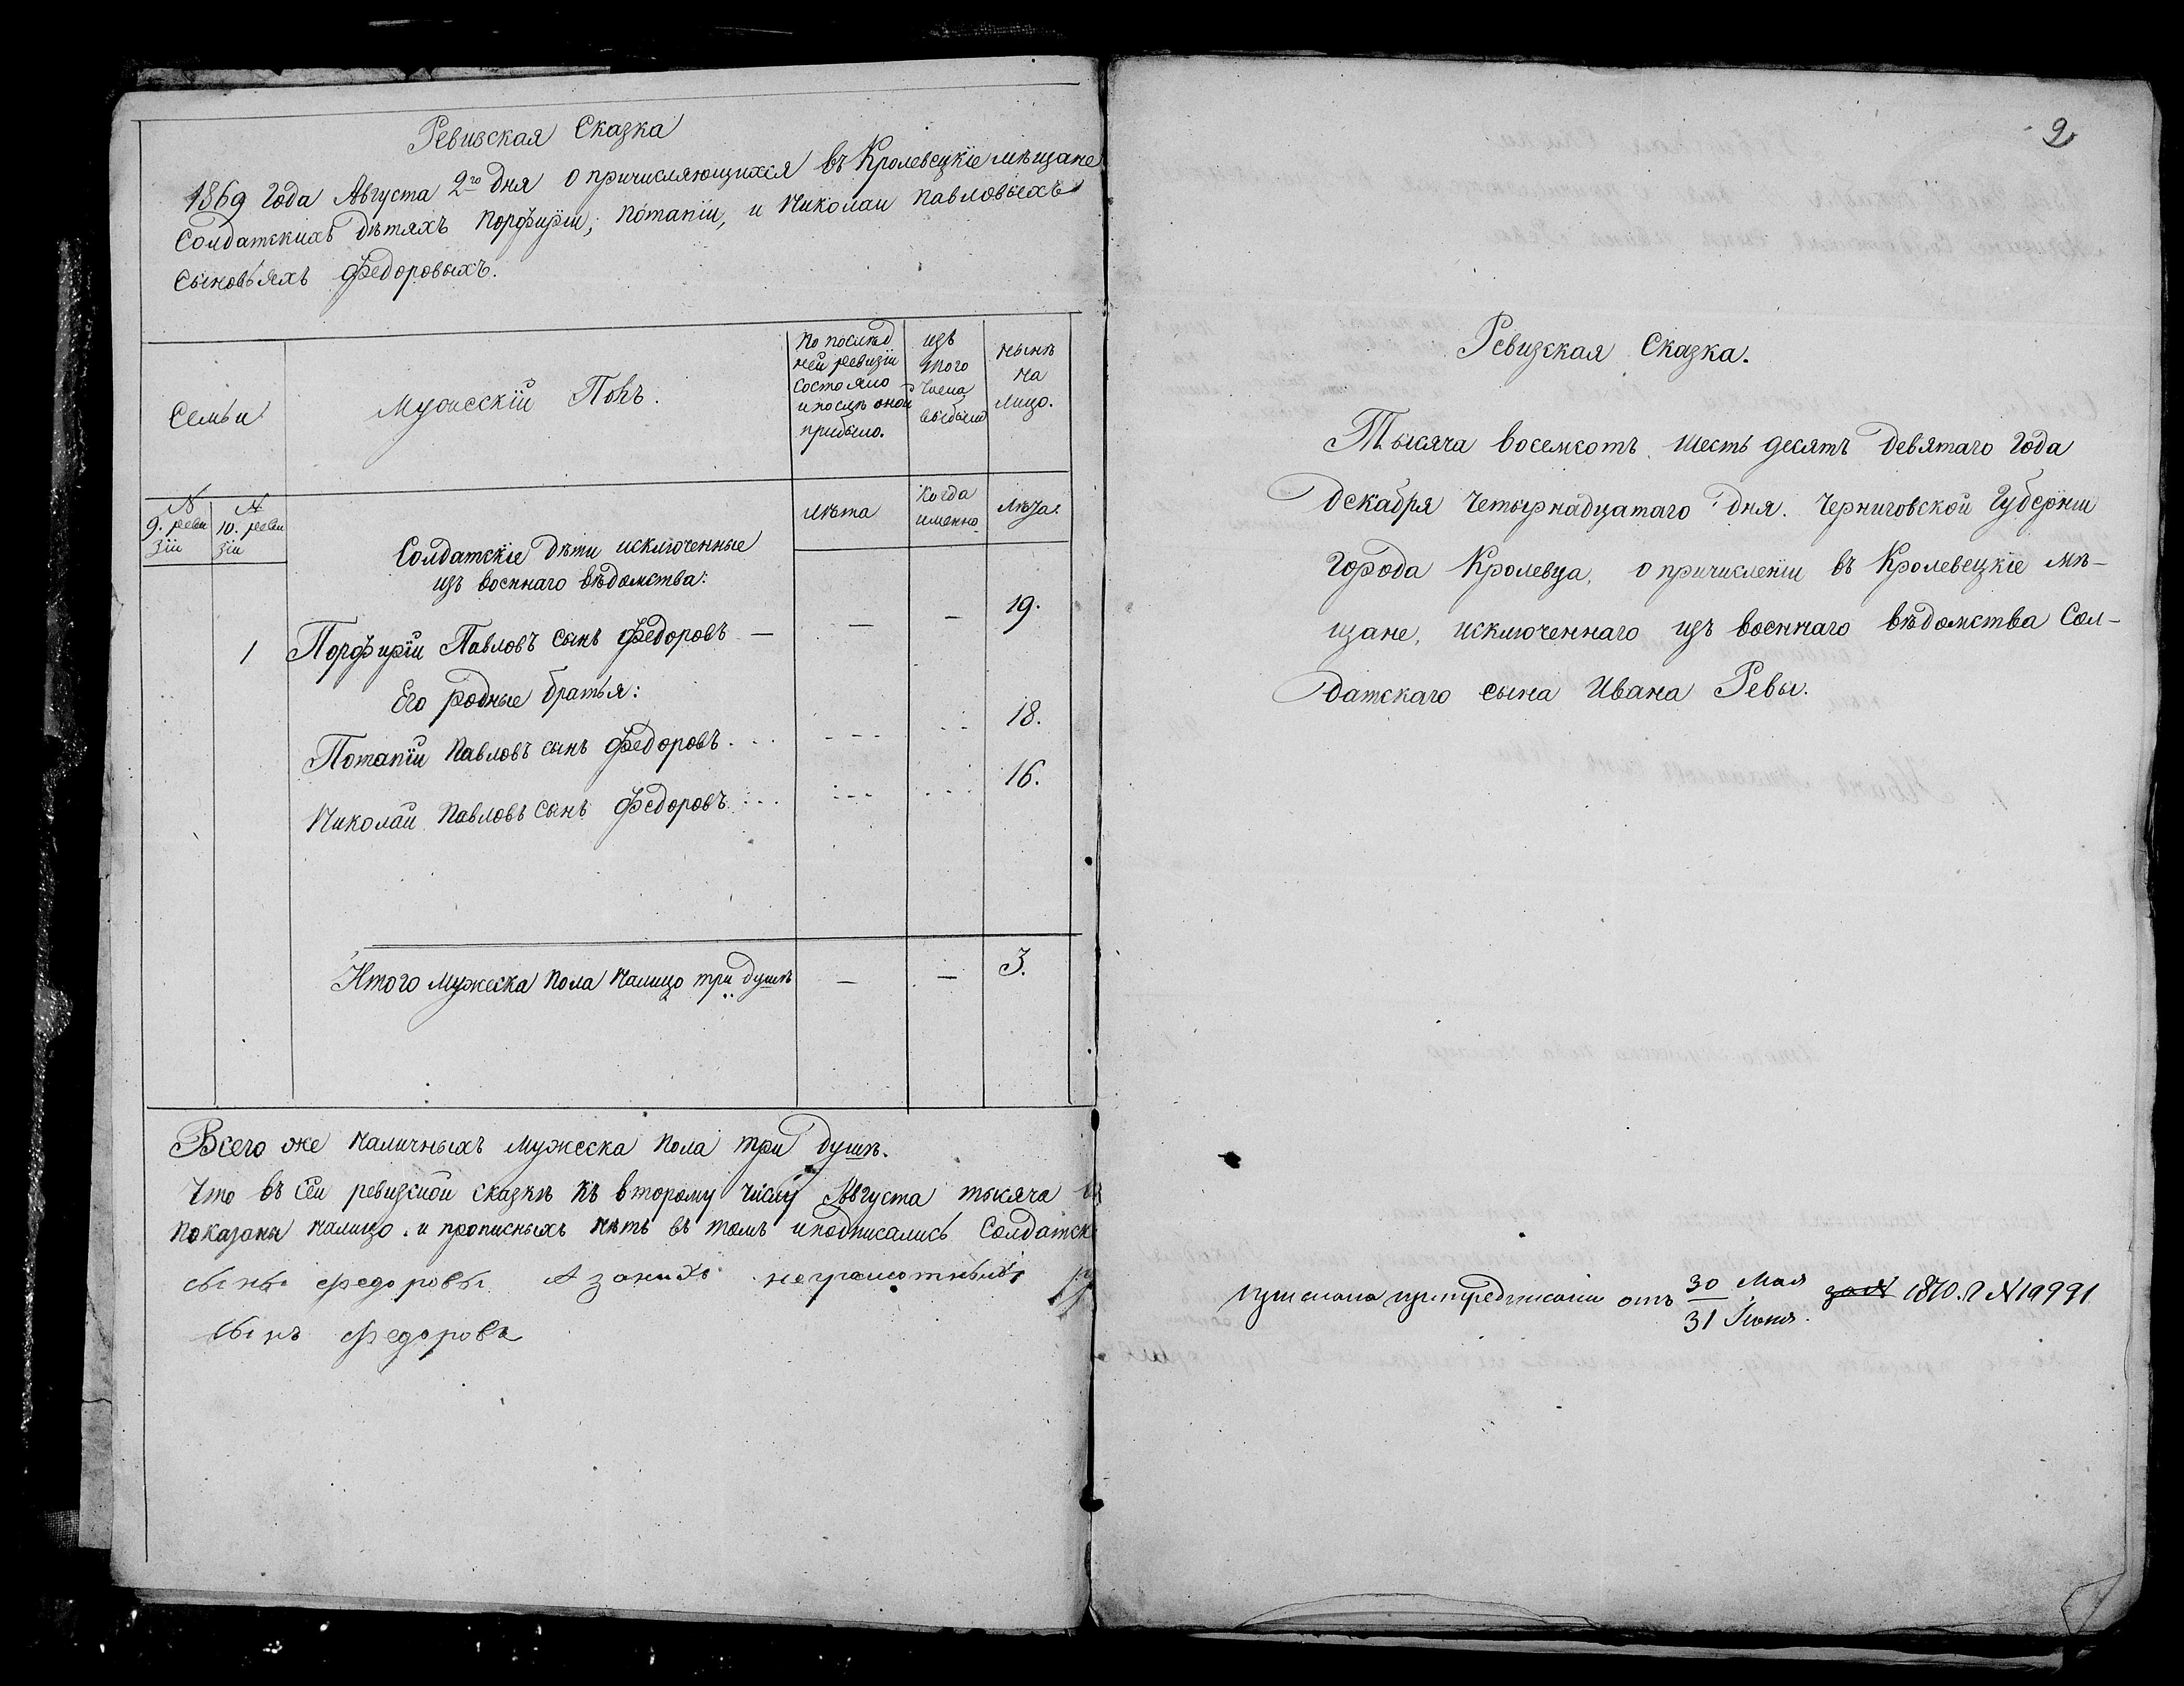 Ревизская Сказка
1869 года Августа 2го дня о причисляющихся въ Кролевецкіе мѣщане
Солдатскихъ дѣтяхъ Порфиріи, Потапіи, и Николаи Павловыхъ
сыновьяхъ Федоровыхъ.
Семьи
Мужескій Полъ.
По послѣд
ней ревизіи
состояло
и послѣ оной
прибыло.
изъ
того
числа
выбыло
нынѣ
на
лицо.
№
9. реви
зіи
№
10. реви
зіи
лѣта
когда
именно
лѣта.
Солдатскіе дѣти исключенные
изъ военнаго вѣдомства:
1 Порфирій Павловъ сынъ Федоровъ — — — 19.
Его родные братья:
Потапій Павловъ сынъ Федоровъ. 18.
Николай Павловъ сынъ Федоровъ 16.
Итого мужеска пола налицо три душѣ — — 3.
Всего же наличныхъ мужеска пола три душѣ.
Что въ сей ревизской сказкѣ къ второму числу Августа тысяча
показаны налицо. и прописныхъ нѣтъ въ томъ и подписались Солдатск
сыны Федоровы А за нихъ неграмотныхъ
сынъ Федоровъ
9
Ревизская Сказка.
Тысяча восемсотъ шестьдесятъ девятаго года
декабря четырнадцатаго дня. Черниговской Губерніи
города Кролевца, о причисленіи въ Кролевецкіе мѣ-
щане, исключеннаго изъ военнаго вѣдомства Сол-
датскаго сына Ивана Ревы.
прислана при предписаніи отъ 30 Мая
31 Іюня. за № 1870. г № 19991